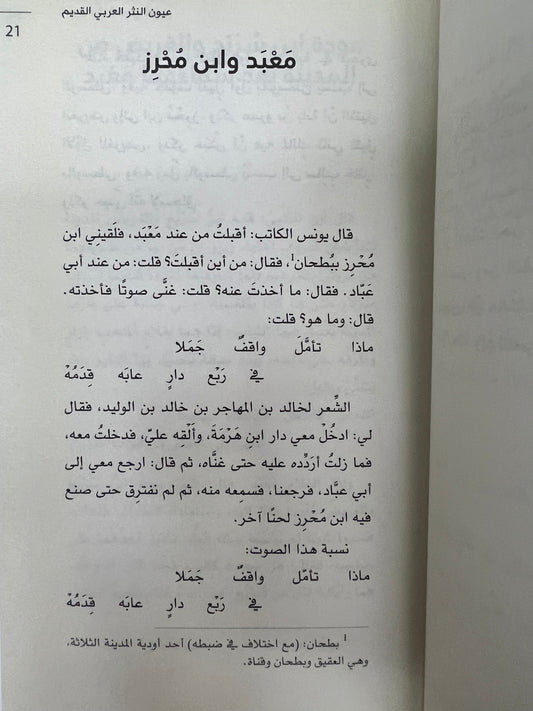 عيون النثر العربي القديم
21
مَعْبَد وابن مُحْرِز
قال يونس الكاتب: أقبلتُ من عند مَعْبَد، فلَقيني ابن
مُحْرِز ببُطحان1، فقال: من أين أقبلتَ؟ قلت: من عند أبي
عَبّاد. فقال: ما أخذتَ عنه؟ قلت: غنَّى صوتًا فأخذته.
قال: وما هو؟ قلت:
ماذا تأمَّلَ واقفٌ جَمَلا
في رَبْع دارٍ عابَه قِدَمُهْ
الشِّعر لخالد بن المهاجر بن خالد بن الوليد، فقال
لي: ادخُلْ معي دار ابنِ هَرْمَةَ، وألْقِه عليّ، فدخلتُ معه،
فما زلتُ أرَدِّده عليه حتى غنَّاه، ثم قال: ارجع معي إلى
أبي عبَّاد، فرجعنا، فسمِعه منه، ثم لم نفترِق حتى صنع
فيه ابن مُحْرِز لحنًا آخر.
نسبة هذا الصوت:
ماذا تأمّل واقفٌ جَمَلا
في رَبْع دارٍ عابَه قِدَمُهْ
1 بطحان: (مع اختلاف في ضبطه) أحد أودية المدينة الثلاثة،
وهي العقيق وبطحان وقناة.